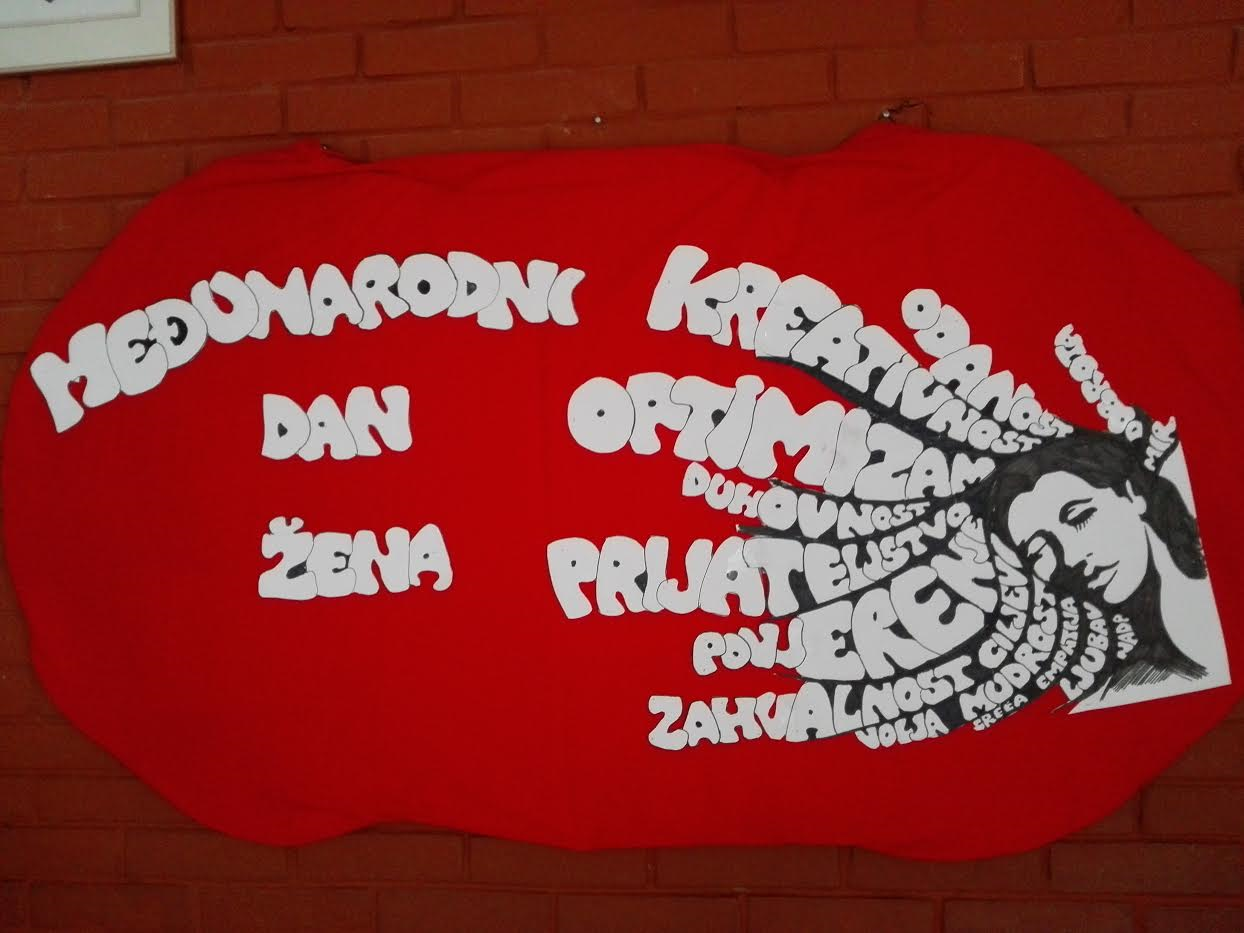 MEĐUNARODNI
DAN
ŽENA
KREATIVNOST
ODANOST
DOBROTA
MIR
OPTIMIZAM
DUHOVNOST
PRIJATELJSTVO
POVJERENJE
CILJEVI
ZAHVALNOST
VOLJA
MUDROST
EMPATIJA
LJUBAV